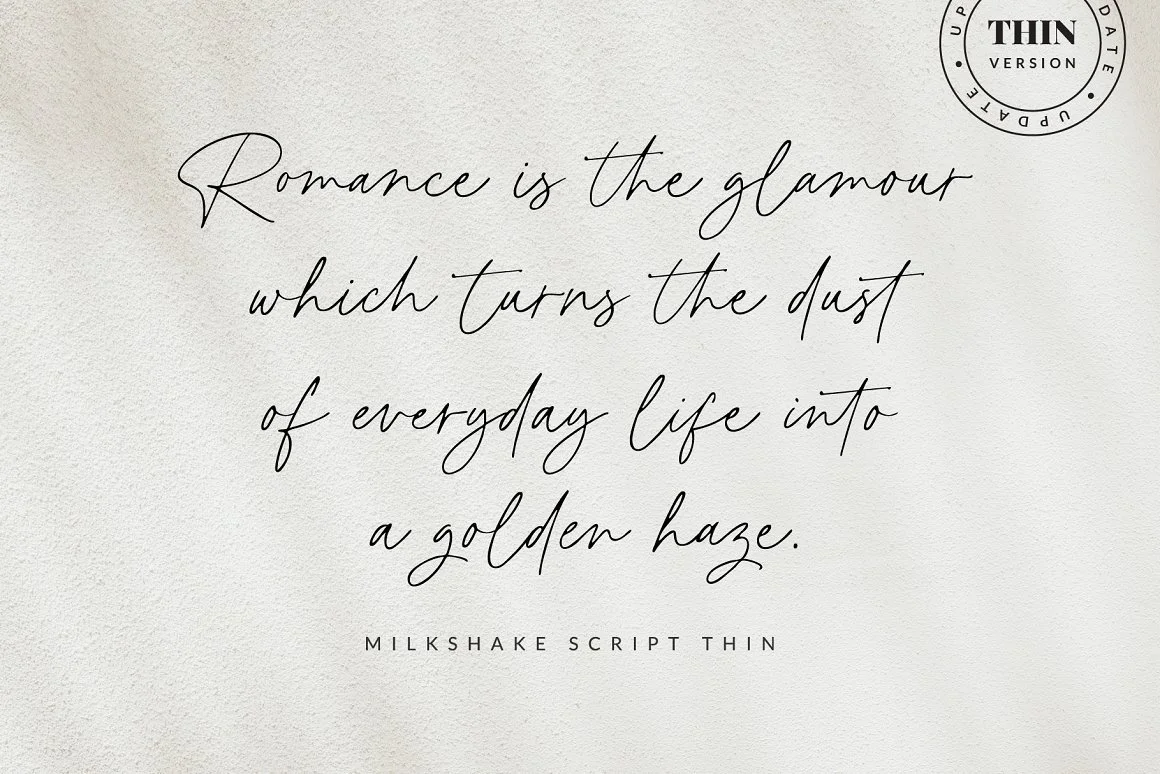 UPDATE • UPDATE •
THIN
VERSION
Romance is the glamour
which turns the dust
of everyday life into
a golden haze.
MILKSHAKE SCRIPT THIN